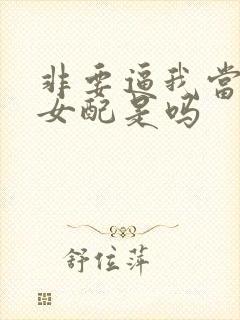 非要逼我當
女配是吗
舒位萍